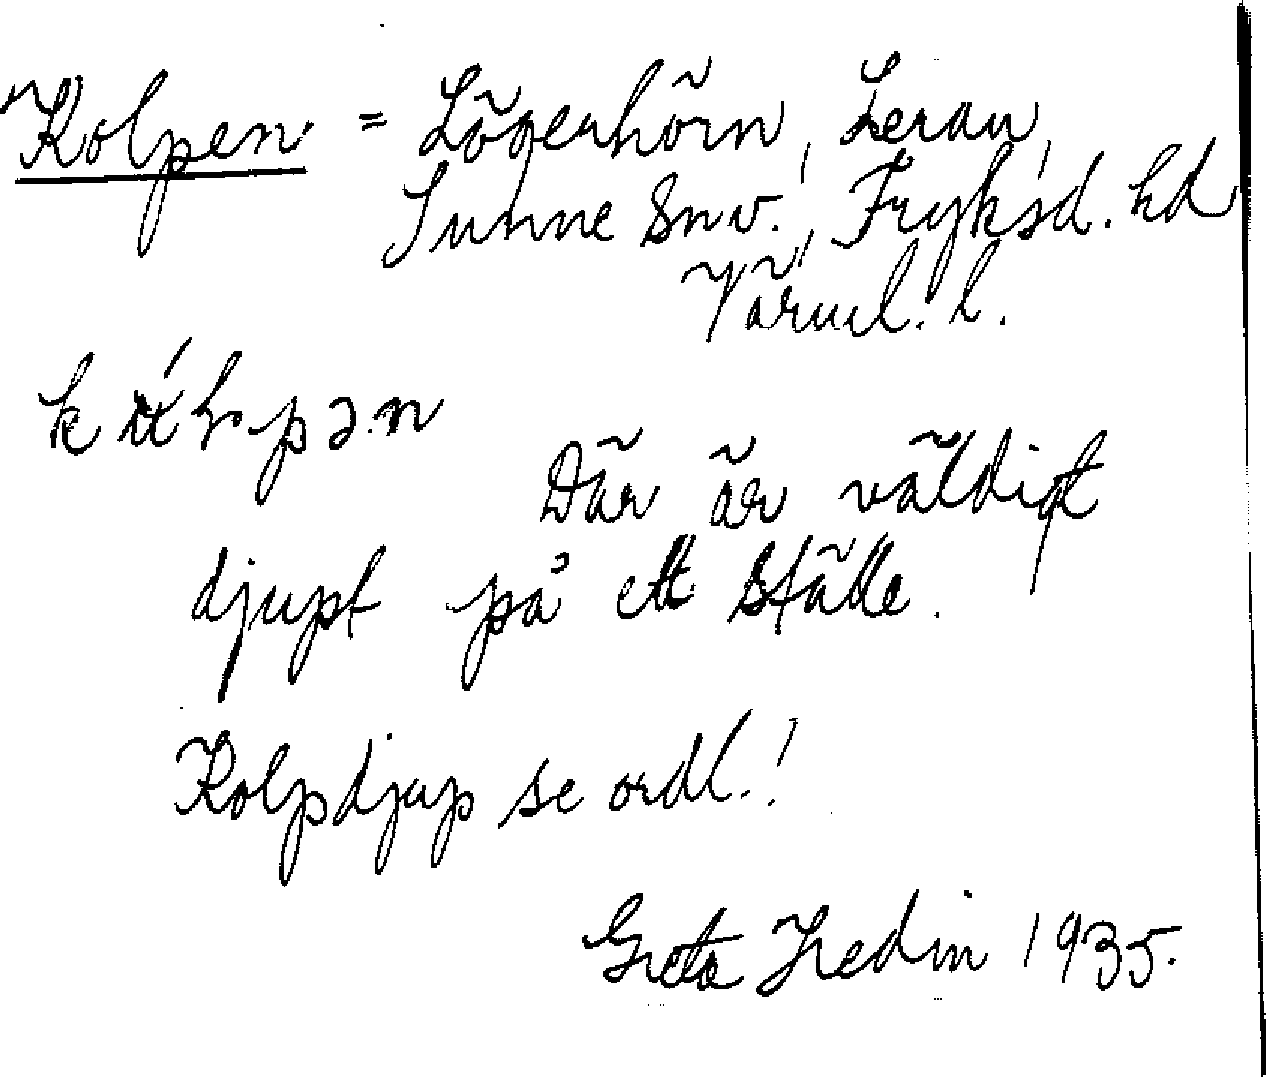 Kolpen = Lögerhörn, Leran,
Sunne Snv., Fryksd. hd
Värml. l.
Där är väldigt
djupt på ett ställe.
Kolpdjup se ordl.!
Greta Hedin 1935.